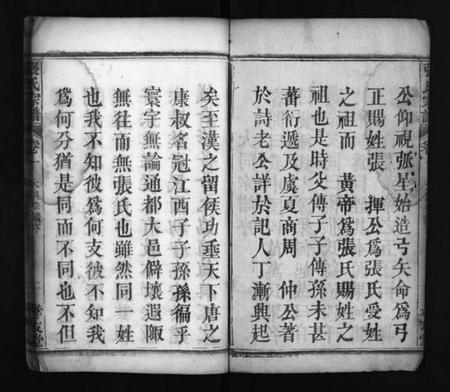 公仰視弧星始造弓矢命爲弓
正賜姓張　揮公爲張氏受姓
之祖而　黃帝爲張氏賜姓之
祖也是時父傳子子傳孫未甚
蕃衍遞及虞夏商周　仲公著
於詩老公詳於記人丁漸興起
矣至漢之留侯功垂天下唐之
康叔名冠江西子子孫孫徧乎
寰宇無論通都大邑僻壤遐陬
無往而無張氏也雖然同一姓
也我不知彼爲何支彼不知我
爲何分猶是同而不同也不但
張氏宗譜
卷一